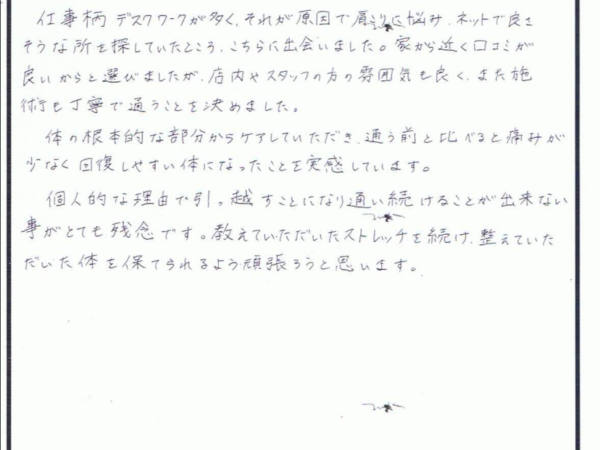 仕事柄デスクワークが多く、それが原因で肩こりに悩み、ネットで良さ
そうな所を探していたところ、こちらに出会いました。家から近く口コミが
良いからと選びましたが、店内やスタッフの方の雰囲気も良く、また施
術も丁寧で通うことを決めました。
体の根本的な部分からケアしていただき、通う前と比べると痛みが
少なく回復しやすい体になったことを実感しています。
個人的な理由で引っ越すことになり通い続けることが出来ない
事がとても残念です。教えていただいたストレッチを続け、整えていた
だいた体を保てられるよう頑張ろうと思います。